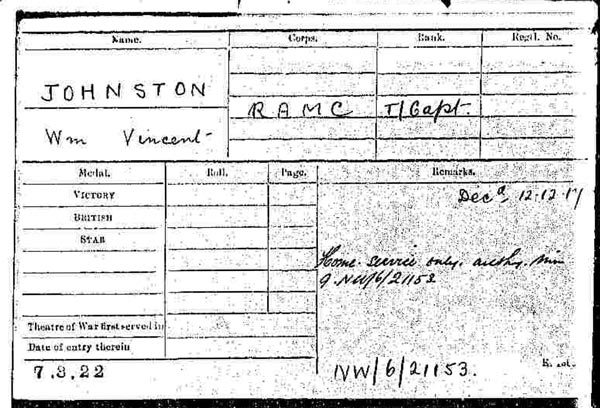 Name. Corps. Rank. Regtl. No.
JOHNSTON
Wm Vincent
RAMC T/Capt.
Medal. Roll. Page. Remarks.
VICTORY
BRITISH
STAR
Decd 12.12.17
Home service only. authy. Min
9. NW/6/21153
Theatre of War first served in
Date of entry therein
7.3.22 NW/6/21153.